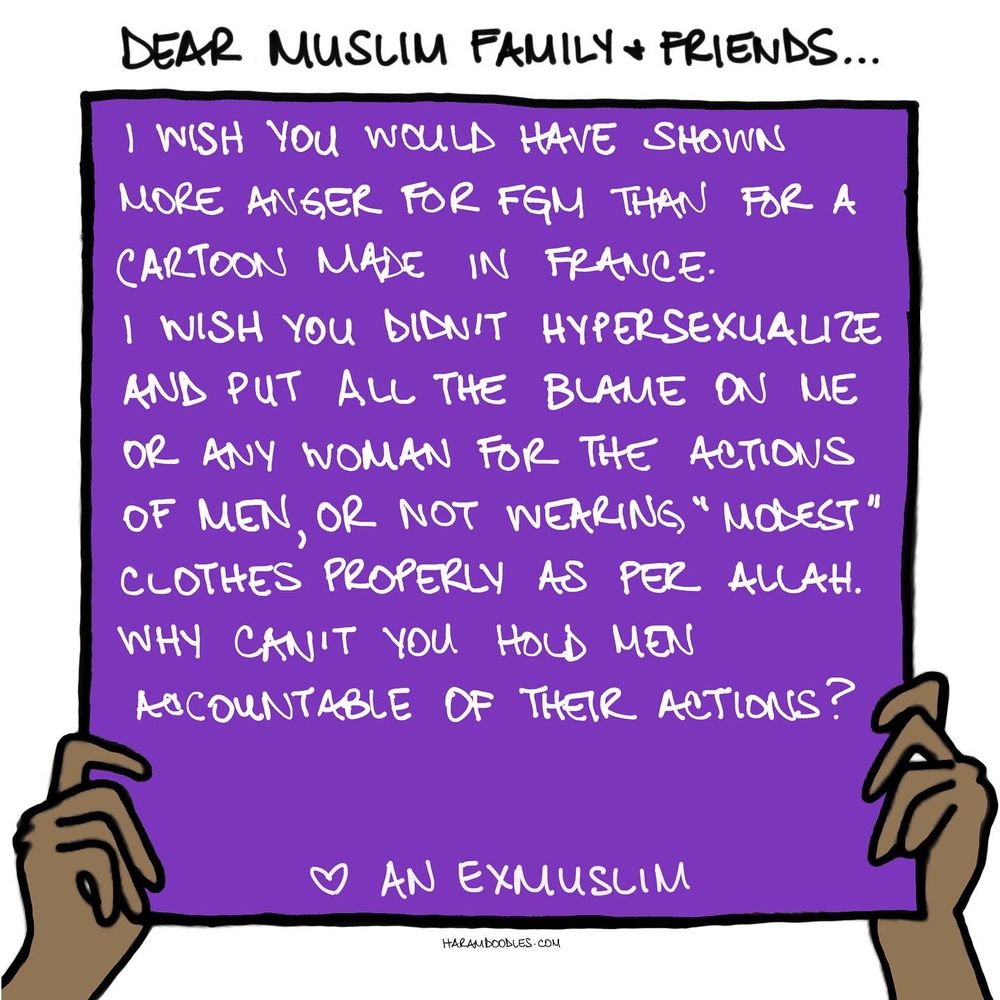 DEAR MUSLIM FAMILY + FRIENDS...
I WISH YOU WOULD HAVE SHOWN
MORE ANGER FOR FGM THAN FOR A
CARTOON MADE IN FRANCE.
I WISH YOU DIDN'T HYPERSEXUALIZE
AND PUT ALL THE BLAME ON ME
OR ANY WOMAN FOR THE ACTIONS
OF MEN, OR NOT WEARING "MODEST"
CLOTHES PROPERLY AS PER ALLAH.
WHY CAN'T YOU HOLD MEN
ACCOUNTABLE OF THEIR ACTIONS?
♡ AN EXMUSLIM
HARAMDOODLES.COM